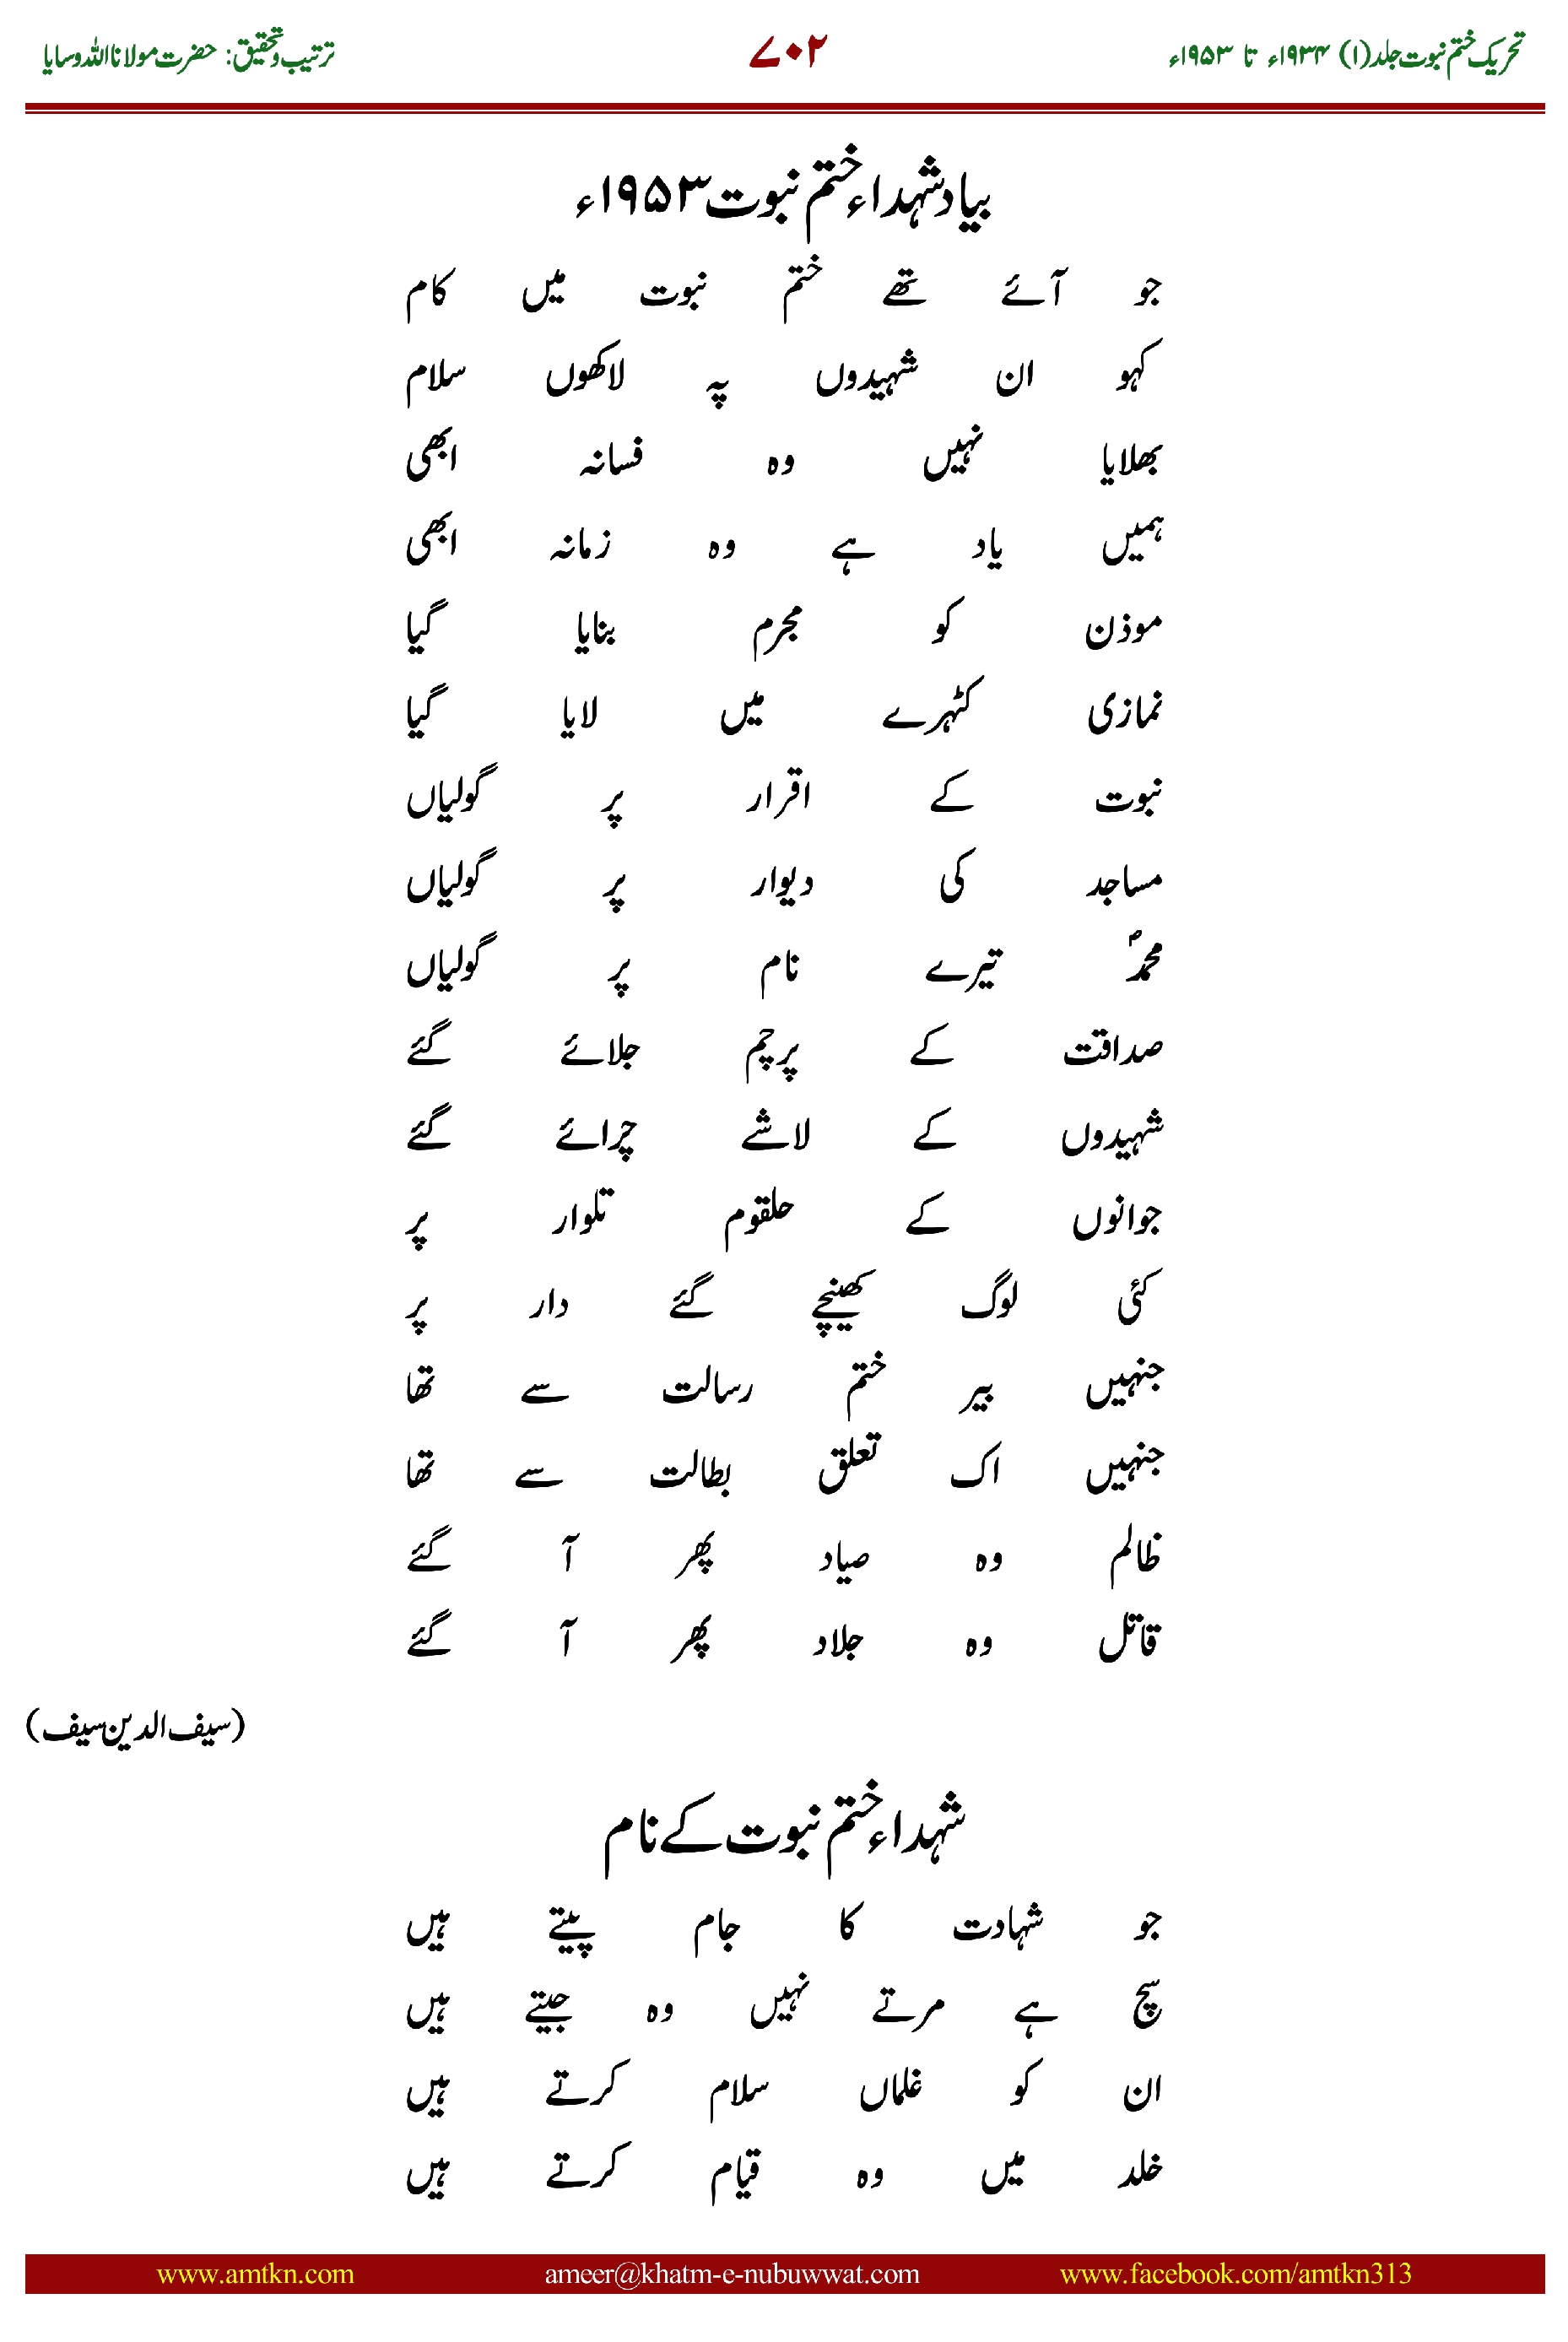 تحریک ختم نبوت جلد(۱) ۱۹۳۴ء تا ۱۹۵۳ء ۷۰۲ ترتیب و تحقیق: حضرت مولانا اللہ وسایا
بیاد شہداء ختم نبوت ۱۹۵۳ء
جو آئے تھے ختم نبوت میں کام
کہو ان شہیدوں پہ لاکھوں سلام
بھلایا نہیں وہ فسانہ ابھی
ہمیں یاد ہے وہ زمانہ ابھی
موذن کو مجرم بنایا گیا
نمازی کٹہرے میں لایا گیا
نبوت کے اقرار پر گولیاں
مساجد کی دیوار پر گولیاں
محمدؐ تیرے نام پر گولیاں
صداقت کے پرچم جلائے گئے
شہیدوں کے لاشے چرائے گئے
جوانوں کے حلقوم تلوار پر
کئی لوگ کھینچے گئے دار پر
جنہیں بیر ختم رسالت سے تھا
جنہیں اک تعلق بطالت سے تھا
ظالم وہ صیاد پھر آ گئے
قاتل وہ جلاد پھر آ گئے
(سیف الدین سیف)
شہداء ختم نبوت کے نام
جو شہادت کا جام پیتے ہیں
سچ ہے مرتے نہیں وہ جیتے ہیں
ان کو غلماں سلام کرتے ہیں
خلد میں وہ قیام کرتے ہیں
www.amtkn.com ameer@khatm-e-nubuwwat.com www.facebook.com/amtkn313